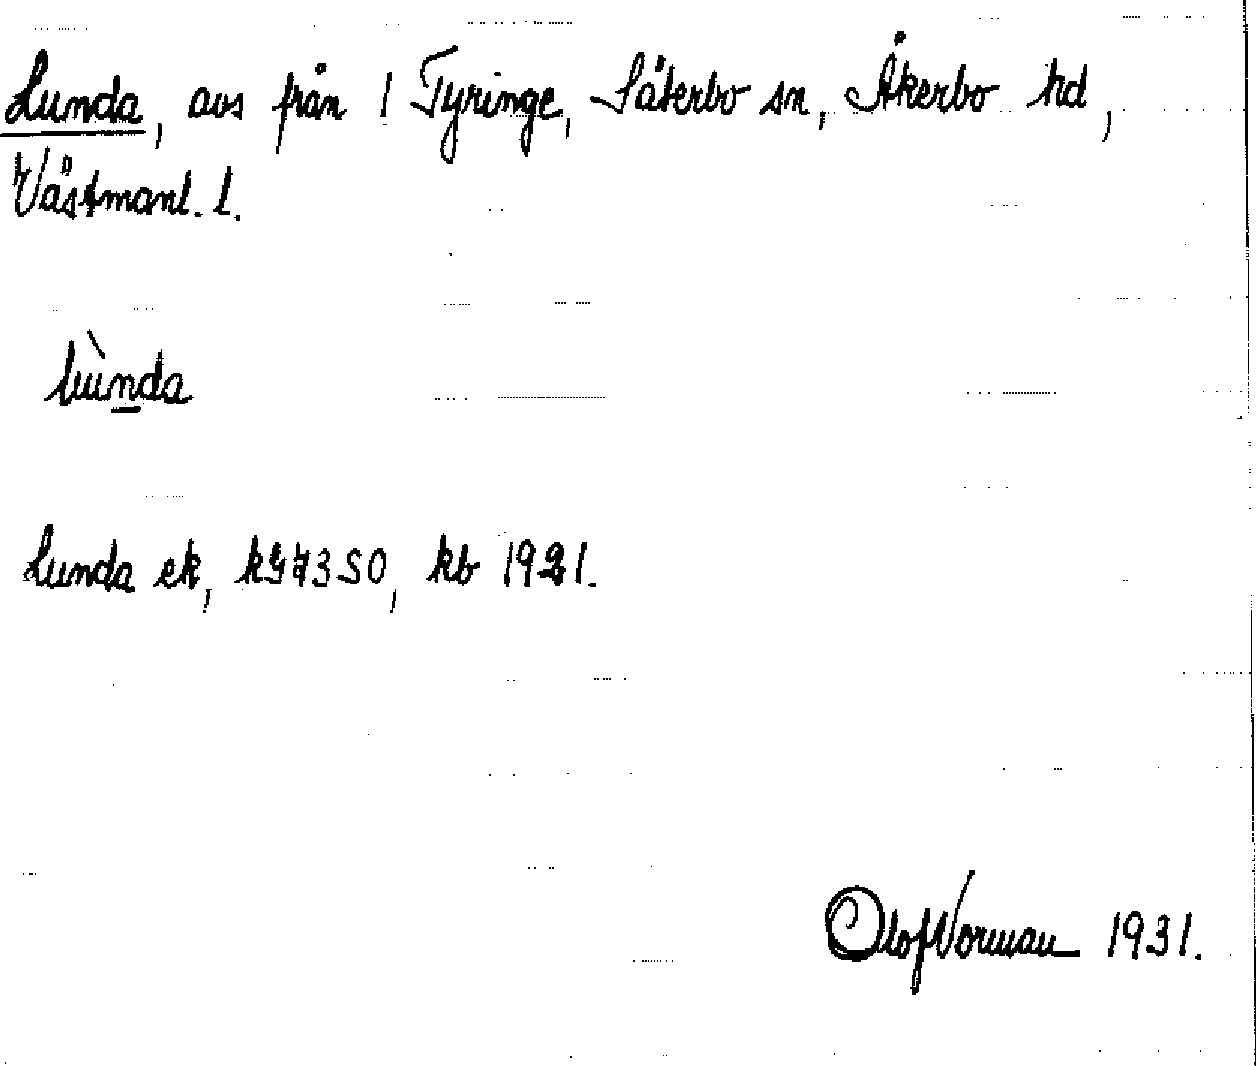 Lunda, avs från 1 Tyringe, Säterbo sn, Åkerbo hd,
Västmanl. l.
lùnda
Lunda ek, kb 1921.
Olof Norman 1931.